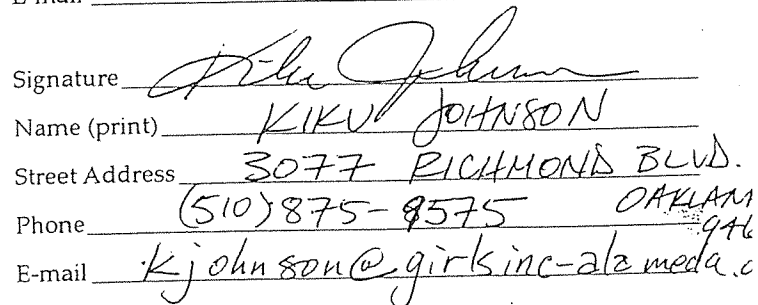 E-mail
Signature Kiku Johnson
Name (print) KIKU JOHNSON
Street Address 3077 RICHMOND BLVD.
Phone (510) 875-9575 OAKLAN
946
E-mail kjohnson@girlsinc-alameda.c